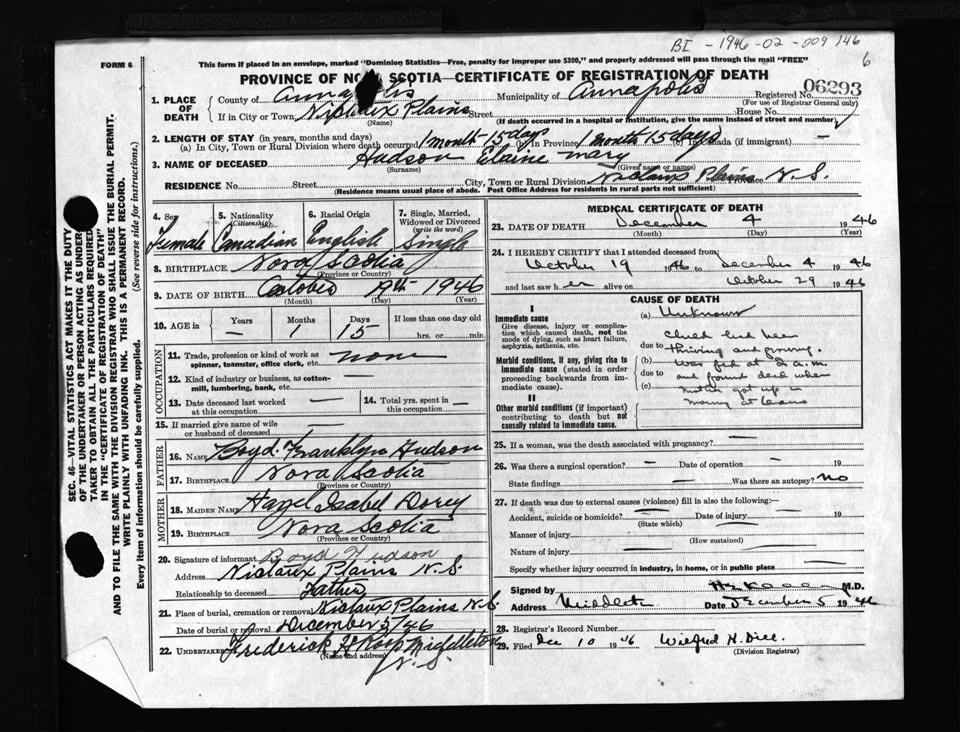 BI - 1946-02-009146
6
FORM 6
This form if placed in an envelope, marked "Dominion Statistics—Free, penalty for improper use $300," and properly addressed will pass through the mail "FREE"
PROVINCE OF NOVA SCOTIA—CERTIFICATE OF REGISTRATION OF DEATH
Registered No. 06293
(For use of Registrar General only)
1. PLACE OF DEATH
County of Annapolis Municipality of Annapolis
If in City or Town, Nictaux Plains Street House No.
(Name) (If death occurred in a hospital or institution, give the name instead of street and number)
2. LENGTH OF STAY (in years, months and days)
(a) In City, Town or Rural Division where death occurred 1 month 15 days (b) In Province 1 month 15 days (c) In Canada (if immigrant) —
3. NAME OF DECEASED Hudson Elaine Mary
(Surname) (Given name or names)
RESIDENCE No. Street City, Town or Rural Division Nictaux Plains Province N.S.
(Residence means usual place of abode. Post Office Address for residents in rural parts not sufficient)
SEC. 46—VITAL STATISTICS ACT MAKES IT THE DUTY
OF THE UNDERTAKER OR PERSON ACTING AS UNDER-
TAKER TO OBTAIN ALL THE PARTICULARS REQUIRED
IN THE "CERTIFICATE OF REGISTRATION OF DEATH"
AND TO FILE THE SAME WITH THE DIVISION REGISTRAR WHO SHALL ISSUE THE BURIAL PERMIT.
WRITE PLAINLY WITH UNFADING INK. THIS IS A PERMANENT RECORD.
Every item of information should be carefully supplied. (See reverse side for instructions.)
4. Sex 5. Nationality (Citizenship) 6. Racial Origin 7. Single, Married, Widowed or Divorced (write the word)
Female Canadian English Single
8. BIRTHPLACE Nova Scotia
(Province or Country)
9. DATE OF BIRTH October 19th 1946
(Month) (Day) (Year)
10. AGE in Years Months Days If less than one day old
— 1 15 hrs. or min.
OCCUPATION
11. Trade, profession or kind of work as spinner, teamster, office clerk, etc. none
12. Kind of industry or business, as cotton-mill, lumbering, bank, etc. —
13. Date deceased last worked at this occupation — 14. Total yrs. spent in this occupation —
15. If married give name of wife or husband of deceased —
FATHER
16. NAME Boyd Franklyn Hudson
17. BIRTHPLACE Nova Scotia
(Province or Country)
MOTHER
18. MAIDEN NAME Hazel Isabel Dorey
19. BIRTHPLACE Nova Scotia
(Province or Country)
20. Signature of informant Boyd Hudson
Address Nictaux Plains N.S.
Relationship to deceased Father
21. Place of burial, cremation or removal Nictaux Plains N.S.
Date of burial or removal December 5/46
22. UNDERTAKER Frederick Middleton
(Name and address) N.S.
MEDICAL CERTIFICATE OF DEATH
23. DATE OF DEATH December 4 1946
(Month) (Day) (Year)
24. I HEREBY CERTIFY that I attended deceased from
October 19 1946 to December 4 1946
and last saw her alive on October 29 1946
CAUSE OF DEATH
I
Immediate cause
Give disease, injury or complication which caused death, not the mode of dying, such as heart failure, asphyxia, asthenia, etc.
Morbid conditions, if any, giving rise to immediate cause (stated in order preceding backwards from immediate cause).
II
Other morbid conditions (if important) contributing to death but not causally related to immediate cause.
(a) Unknown
Child had been
due to thriving and
(b) Was fed at 2 a.m.
due to and found dead when
(c) mother got up in
morning at
25. If a woman, was the death associated with pregnancy? —
26. Was there a surgical operation? — Date of operation — 19
State findings — Was there an autopsy? no
27. If death was due to external causes (violence) fill in also the following:—
Accident, suicide or homicide? — Date of injury — 19
(State which)
Manner of injury —
(How sustained)
Nature of injury —
Specify whether injury occurred in industry, in home, or in public place —
Signed by M.D.
Address Middleton Date December 5 1946
28. Registrar's Record Number
29. Filed Dec 10 1946 Wilfred H. Dill.
(Division Registrar)